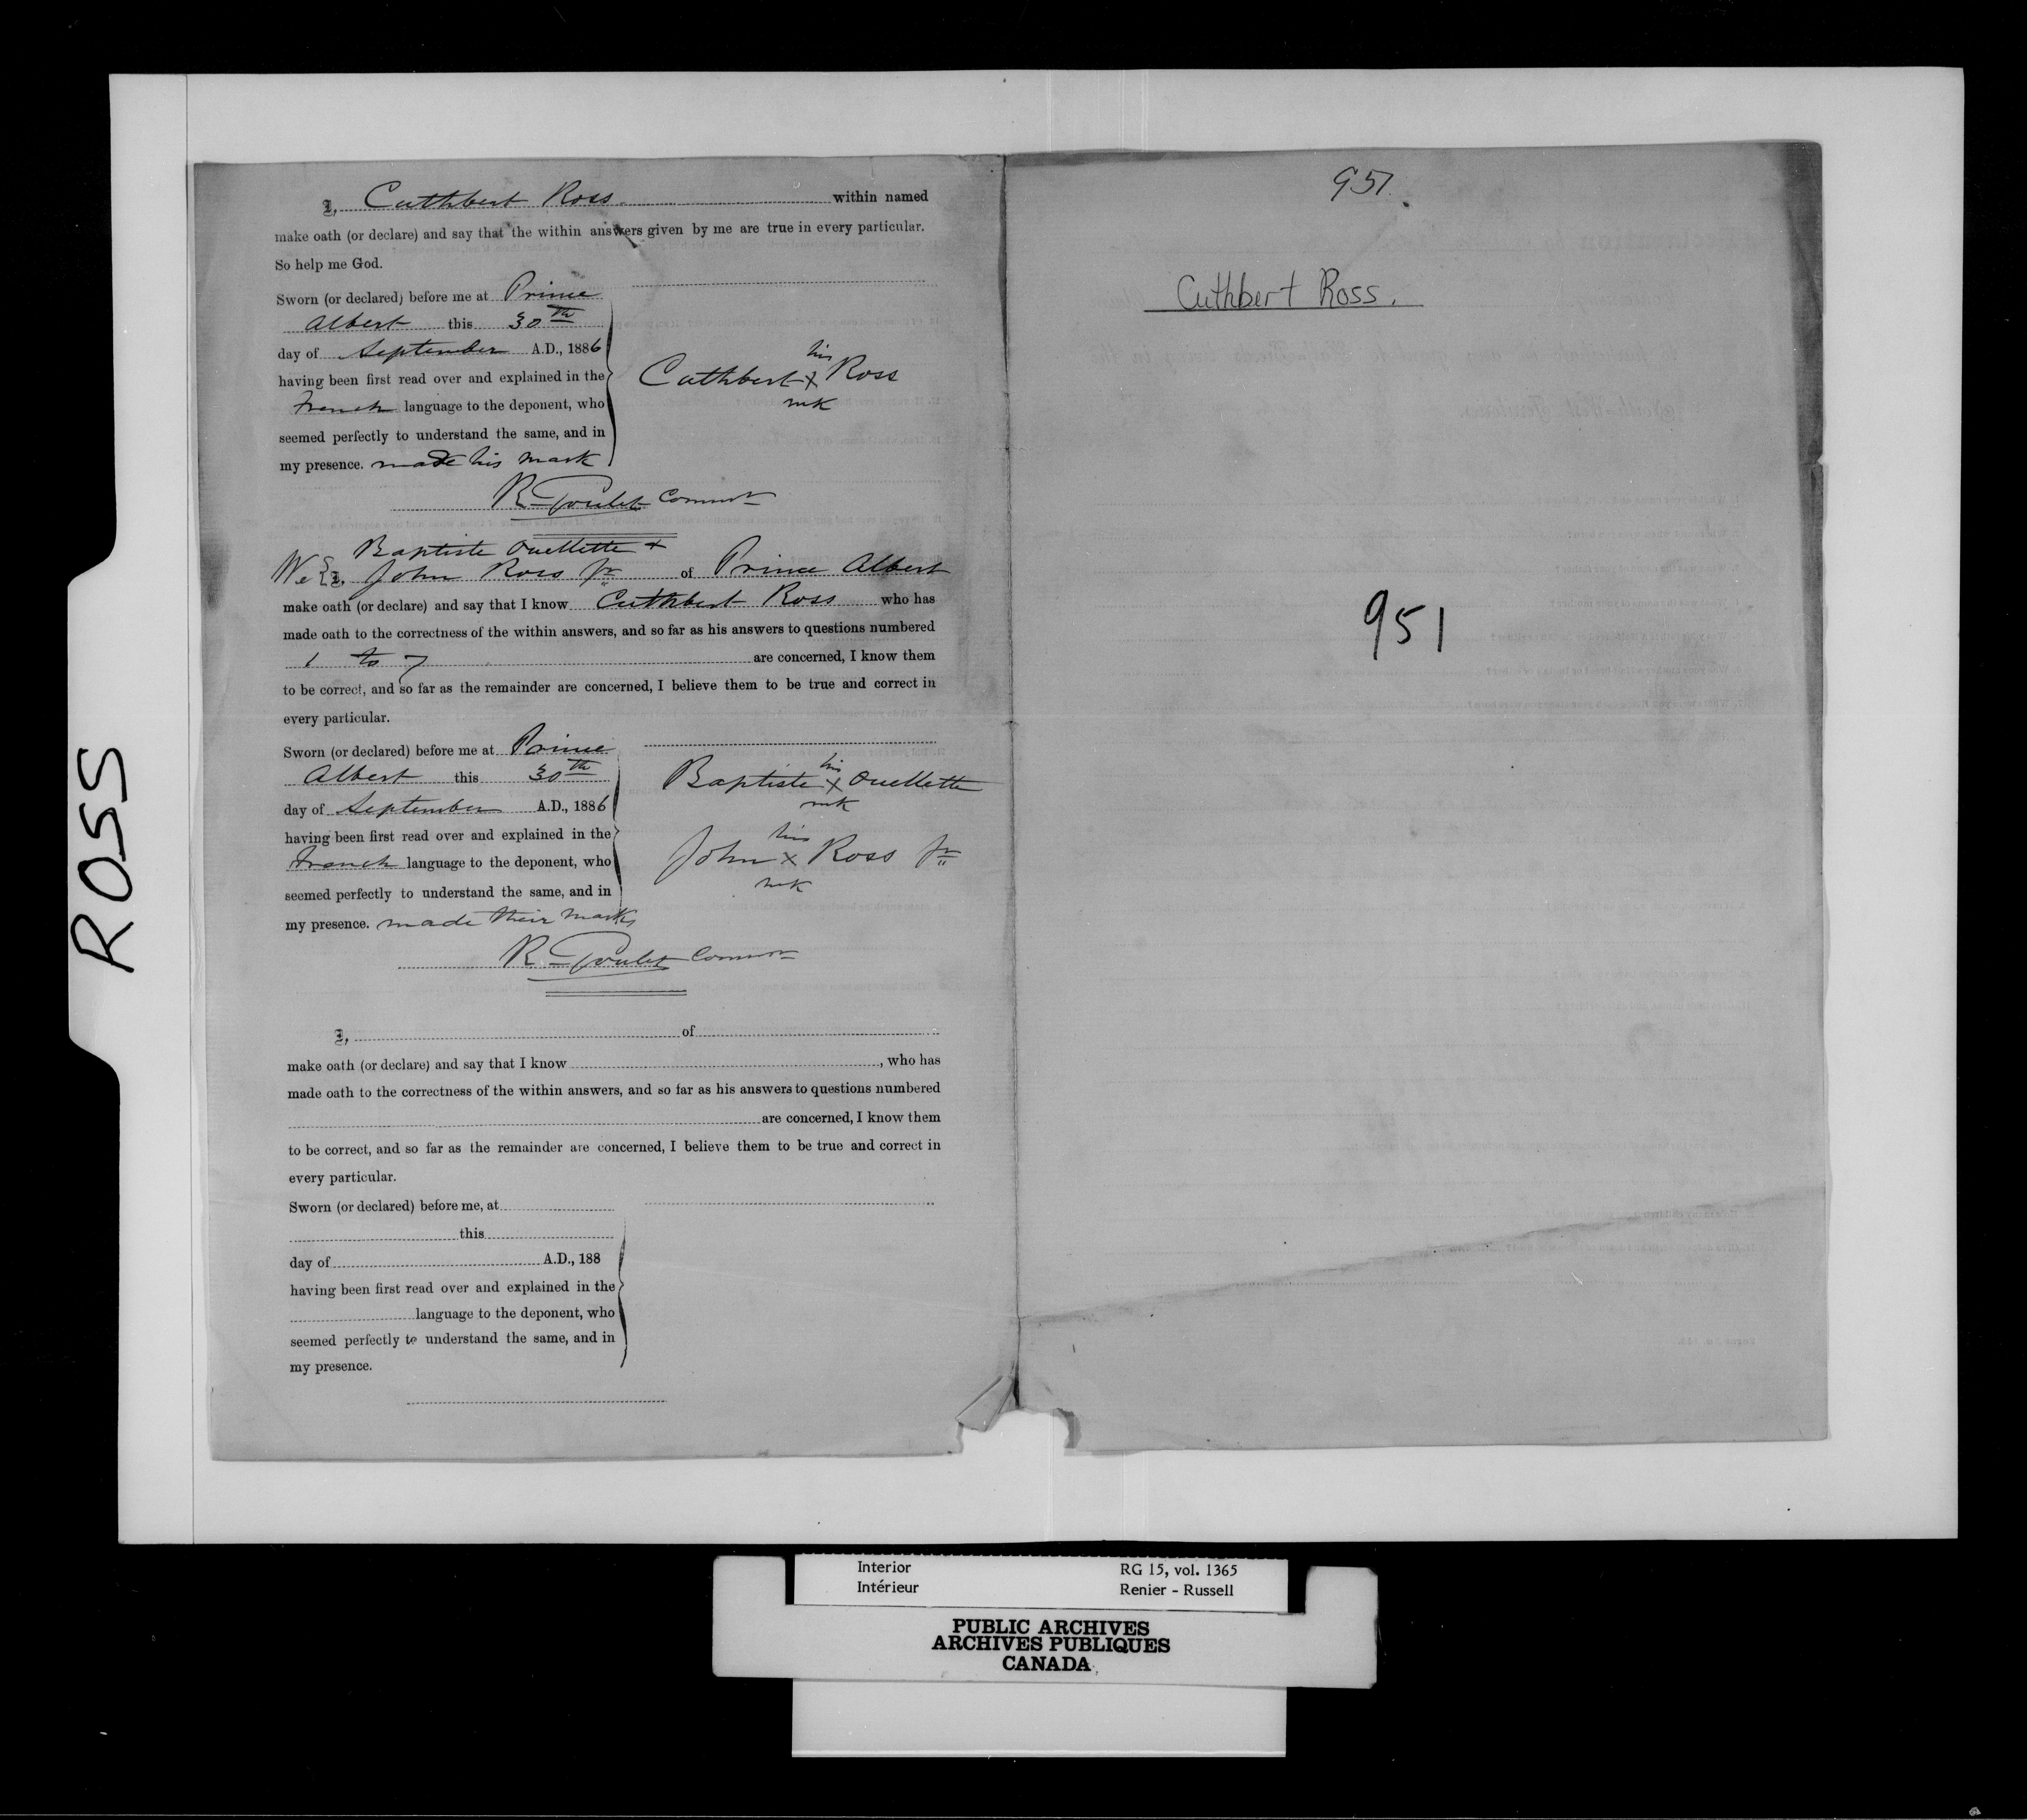 ROSS
I, Cuthbert Ross within named
make oath (or declare) and say that the within answers given by me are true in every particular.
So help me God.
Sworn (or declared) before me at Prince
Albert this 30th
day of September A.D., 1886
having been first read over and explained in the
French language to the deponent, who
seemed perfectly to understand the same, and in
my presence. made his mark
his
Cuthbert x Ross
mk
R. Goulet Commr
Baptiste Ouellette +
We I, John Ross Jr of Prince Albert
make oath (or declare) and say that I know Cuthbert Ross who has
made oath to the correctness of the within answers, and so far as his answers to questions numbered
1 to 7 are concerned, I know them
to be correct, and so far as the remainder are concerned, I believe them to be true and correct in
every particular.
Sworn (or declared) before me at Prince
Albert this 30th
day of September A.D., 1886
having been first read over and explained in the
French language to the deponent, who
seemed perfectly to understand the same, and in
my presence. made their marks
his
Baptiste x Ouellette
mk
his
John x Ross Jr
mk
R. Goulet Commr
I, of
make oath (or declare) and say that I know , who has
made oath to the correctness of the within answers, and so far as his answers to questions numbered
are concerned, I know them
to be correct, and so far as the remainder are concerned, I believe them to be true and correct in
every particular.
Sworn (or declared) before me, at
this
day of A.D., 188
having been first read over and explained in the
language to the deponent, who
seemed perfectly to understand the same, and in
my presence.
951.
Cuthbert Ross.
951
Interior RG 15, vol. 1365
Intérieur Renier - Russell
PUBLIC ARCHIVES
ARCHIVES PUBLIQUES
CANADA